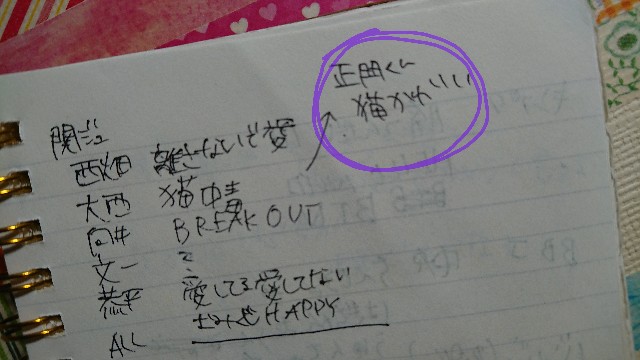 正門くん
猫かわいい
関ジュ
西畑 離さないで愛
大西 猫中毒
向井 BREAK OUT
文一 ?
恭平 愛してる愛してない
ALL なみだHAPPY